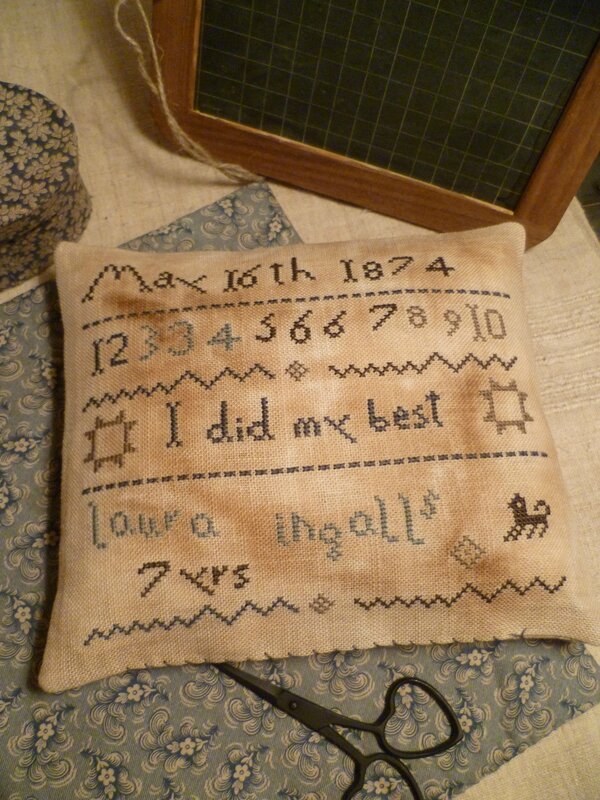 May 16th 1874
12334566678910
I did my best
laura ingalls
7 yrs